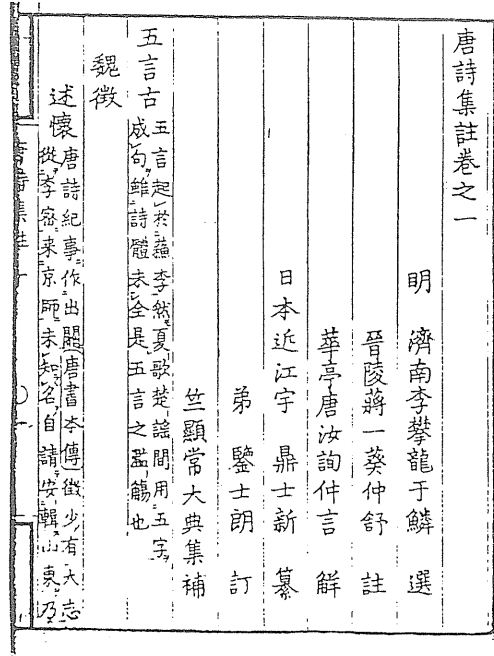 唐詩集註卷之一
明 濟南李攀龍于鱗 選
晉陵蔣一葵仲舒 註
華亭唐汝詢仲言 解
日本近江宇 鼎士新 纂
弟 鑒士朗 訂
竺顯常大典集補
五言古
五言起於蘇李然夏歌楚謠間用五字
成句雖詩體未全是五言之濫觴也
魏徵
述懷
唐詩紀事作出關唐書本傳徵少有大志
從李密来京師未知名自請安輯山東乃